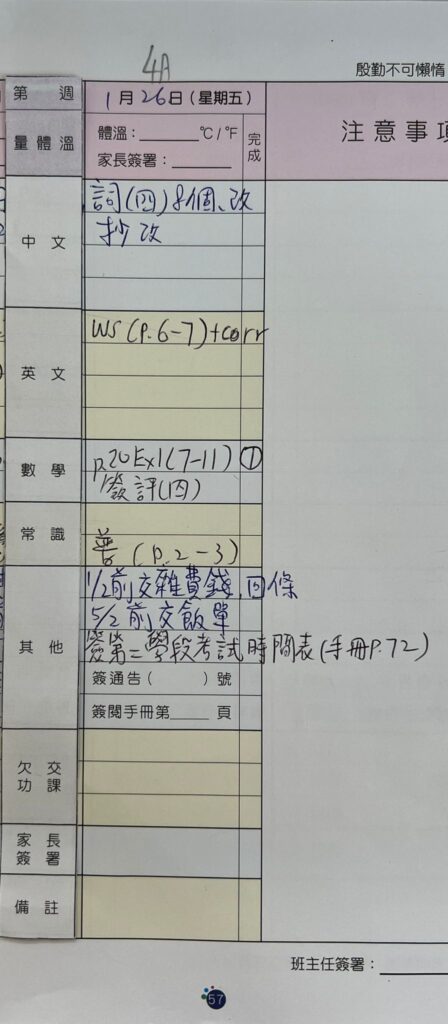 4A
殷勤不可懶惰
第 週
1月26日(星期五)
量體溫
體溫:______°C/°F
家長簽署:______
完成
注意事項
中文
詞(四)8個、改
抄改
英文
WS(P.6-7)+corr
數學
p.20Ex1(7-11) ①
簽評(四)
常識
普(P.2-3)
其他
1/2前交雜費錢,回條
5/2前交飯單
簽第二學段考試時間表(手冊P.72)
簽通告( )號
簽閱手冊第____頁
欠交功課
家長簽署
備註
班主任簽署:
57